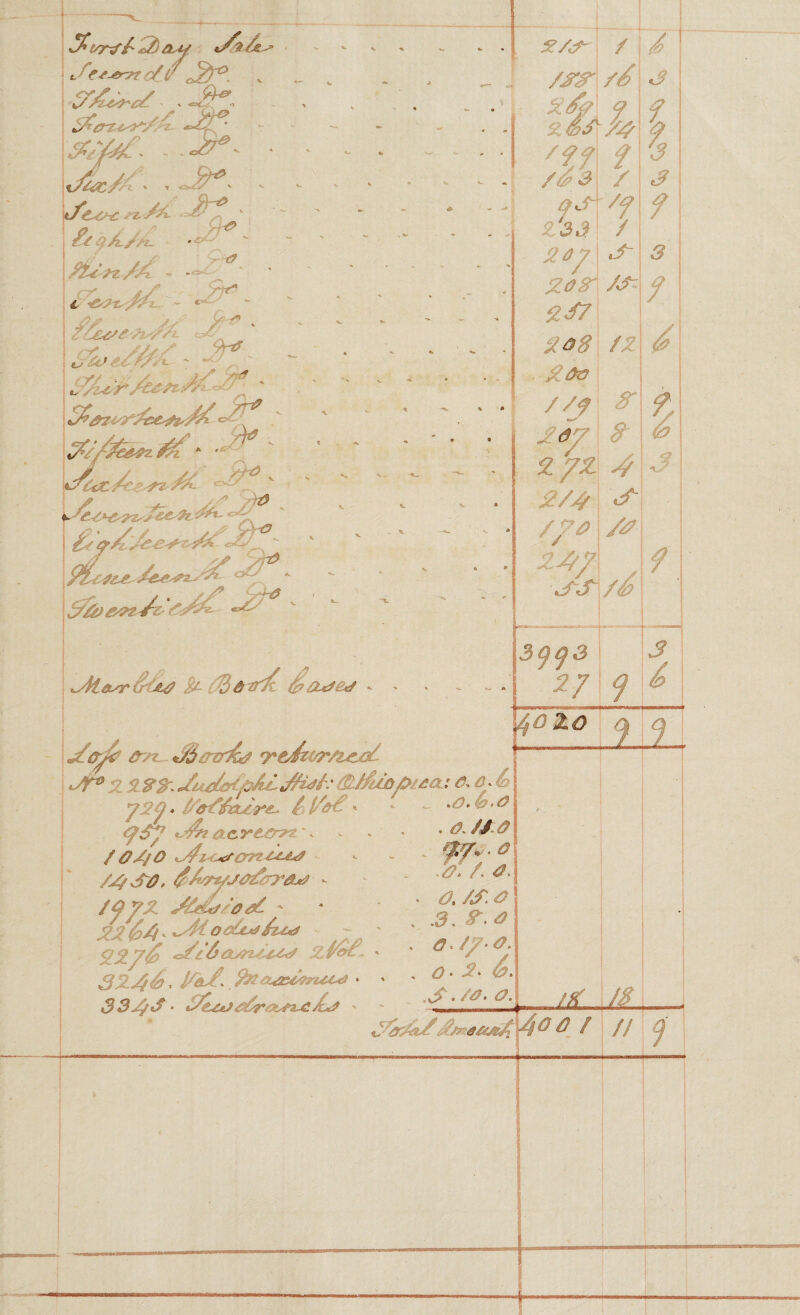 First Day Sale 215 1 6
Second Do. 188 16 3
Third Do. 269 9 9
Fourth Do. 265 14 9
Fifth Do. 199 9 3
Sixth Do. 163 1 3
Seventh Do. 95 19 9
Eighth Do. 233 1
Ninth Do. 207 5 3
Tenth Do. 208 15 9
Eleventh Do. 257
Twelfth Do. 208 12 6
Thirteenth Do. 200
Fourteenth Do. 119 8 9
Fifteenth Do. 207 8 6
Sixteenth Do. 272 4 3
Seventeenth Do. 214 5
Eighteenth Do. 170 10
Nineteenth Do. 247 9
Twentieth Do. 55 16
3993 3
Marbles & Book Cases 27 9 6
4020 9 9
Loss on Books returned
No 2288. Ludolphi Hist: Æthiopica: 0.0.6
729. Voltaire. 6 Vol. 0.6.0
957 Anacreon 0.11.0
1040 Ausonius 7.7.0
1450. Chrysoloras 0.1.0
1972 Hesiod 0.15.0
2264. Modestus 3.8.0
2276 Libanius 2 Vol. 0.17.0.
3246, Val. Maximus 0.2.6.
3345. Tewdrancks 5.10.0. 18 18
Total Amount 4001 11 9